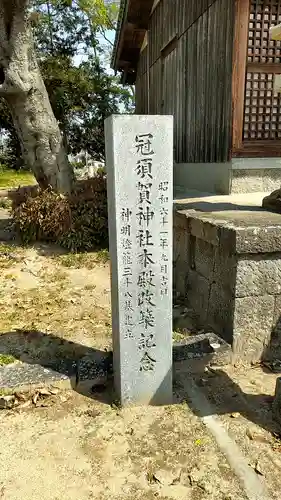 昭和六十一年九月吉日
冠須賀神社本殿改築記念
神燈籠三十八基建立